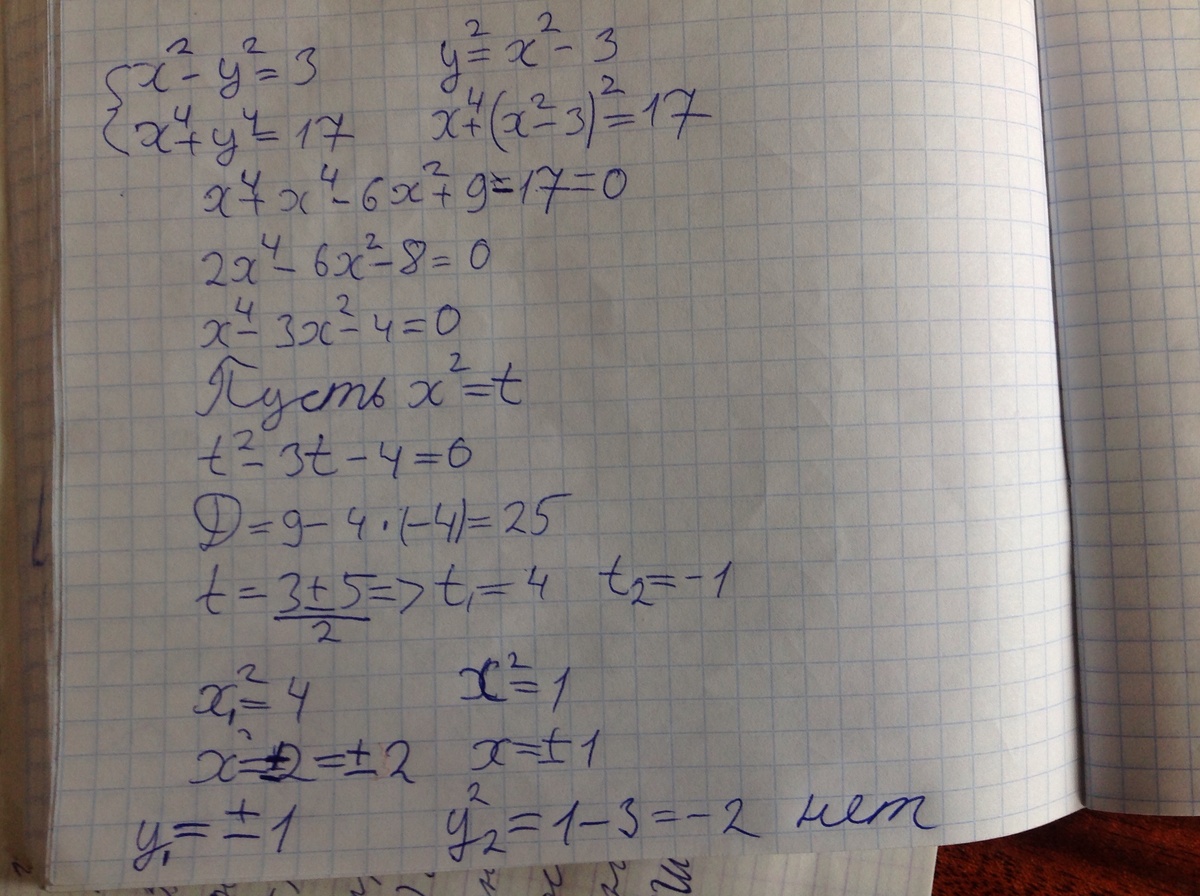 { x² - y² = 3    y² = x² - 3
x⁴ + y⁴ = 17    x⁴ + (x² - 3)² = 17
x⁴ + x⁴ - 6x² + 9 - 17 = 0
2x⁴ - 6x² - 8 = 0
x⁴ - 3x² - 4 = 0
Пусть x² = t
t² - 3t - 4 = 0
D = 9 - 4 · (-4) = 25
t = (3 ± 5)/2 => t₁ = 4    t₂ = -1
x₁² = 4    x² = 1
x = ±2 = ±2    x = ±1
y₁ = ±1    y₂² = 1 - 3 = -2 нет